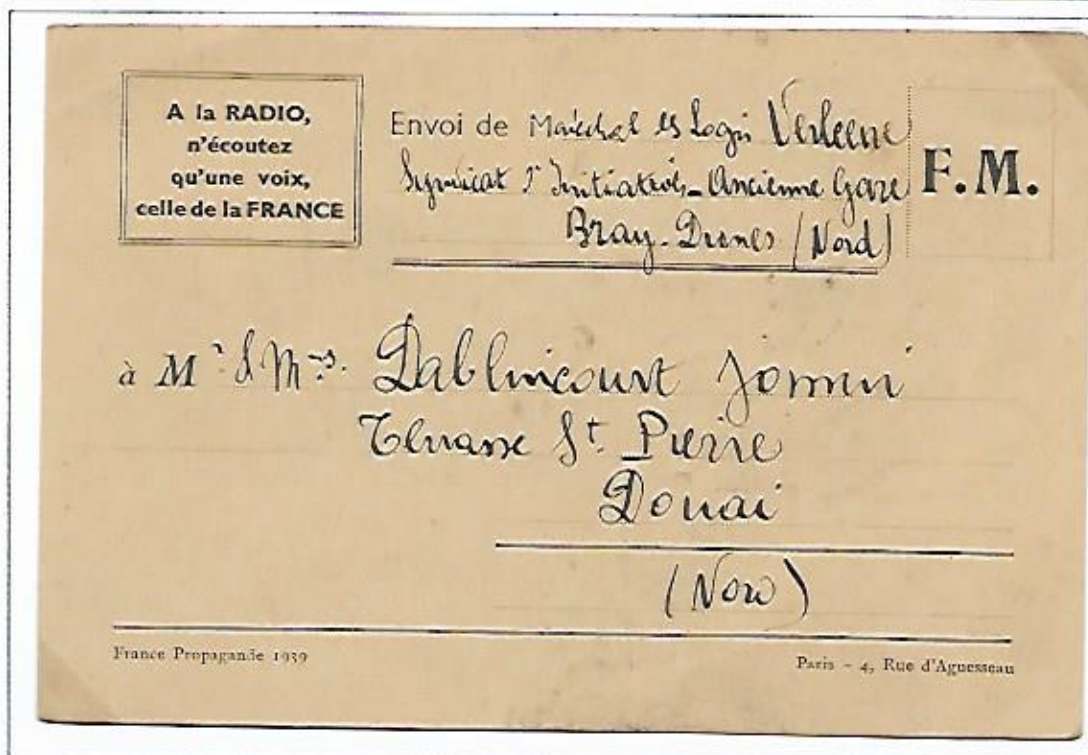 A la RADIO,
n'écoutez
qu'une voix,
celle de la FRANCE
Envoi de Maréchal ds Logis Verleene
Syndicat d'Initiative - Ancienne Gare
Bray-Dunes (Nord)
F. M.
à Mr & Mrs. Dablincourt
Terrasse St. Pierre
Douai
(Nord)
France Propagande 1939
Paris - 4, Rue d'Aguesseau